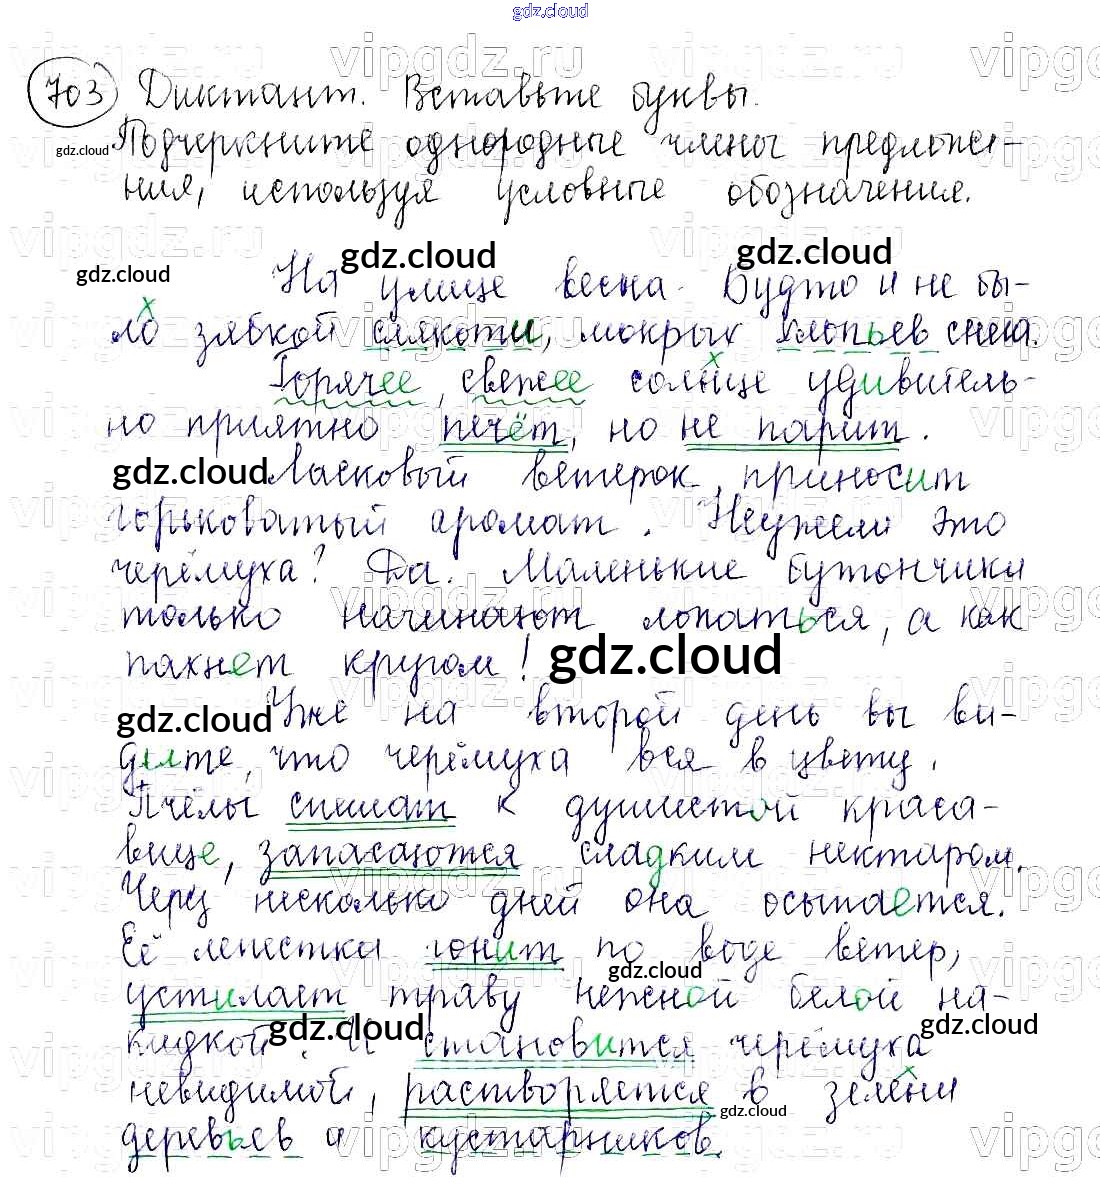 gdz.cloud
703 Диктант. Вставьте буквы.
Подчеркните однородные члены предложе-
ния, используя условные обозначения.
На улице весна. Будто и не бы-
ло зябкой слякоти, мокрых хлопьев снега.
Горячее, свежее солнце удивитель-
но приятно печёт, но не парит.
Ласковый ветерок приносит
горьковатый аромат. Неужели это
черёмуха? Да. Маленькие бутончики
только начинают лопаться, а как
пахнет кругом!
Уже на второй день вы ви-
дите, что черёмуха вся в цвету.
Пчёлы спешат к душистой краса-
вице, запасаются сладким нектаром.
Через несколько дней она осыпается.
Её лепестка гонит по воде ветер,
устилает траву нежной белой на-
кидкой. И становится черёмуха
невидимой, растворяется в зелени
деревьев и кустарников.